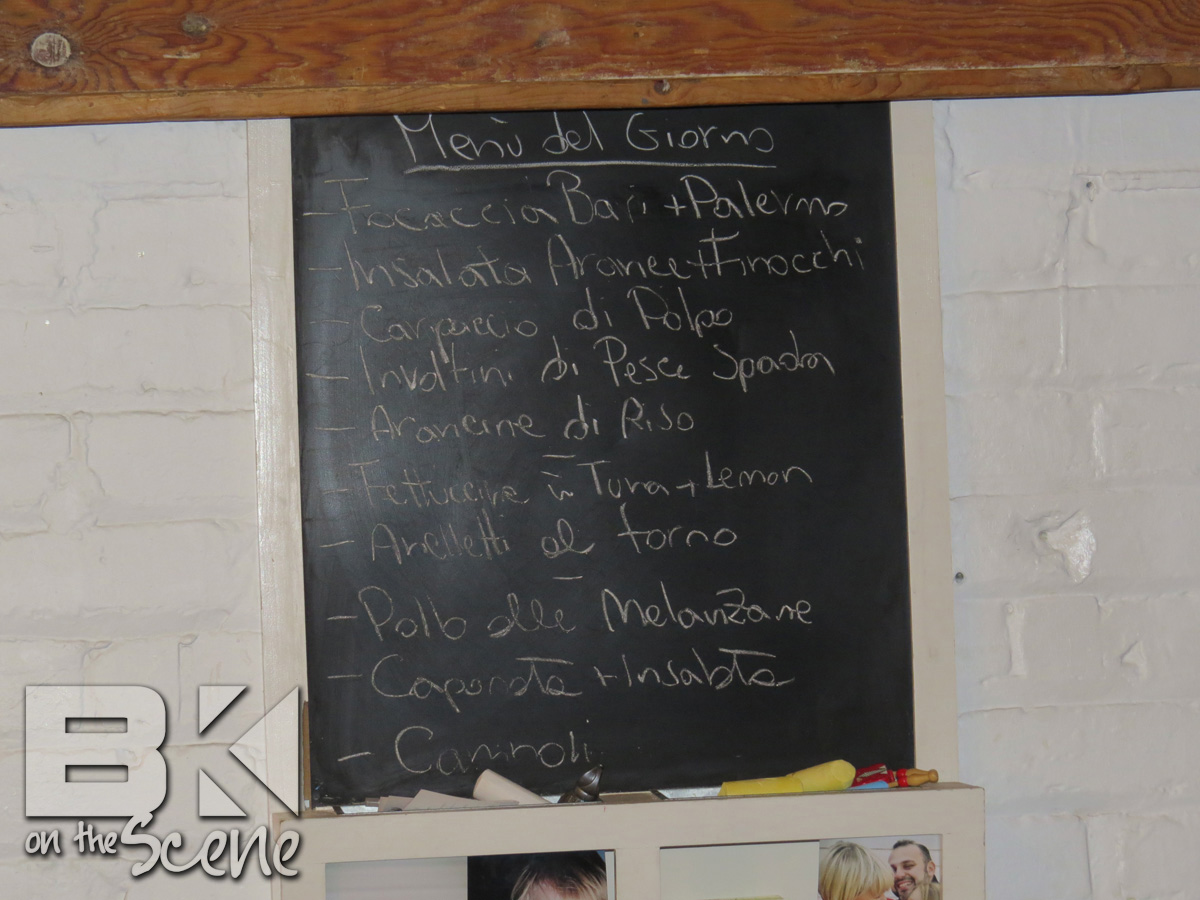 Menù del Giorno
- Focaccia Bari + Palermo
- Insalata Arance + Finocchi
- Carpaccio di Polpo
- Involtini di Pesce Spada
- Arancine di Riso
- Fettuccine w Tuna + Lemon
- Anelletti al forno
- Pollo alle Melanzane
- Caponata + Insalata
- Cannoli
BK
on the Scene